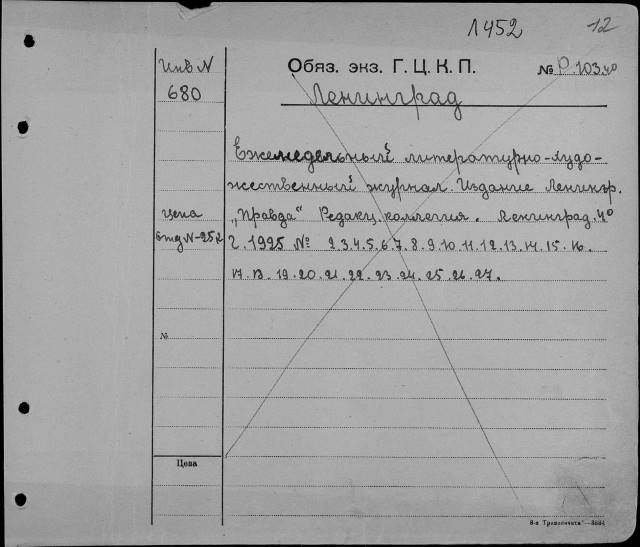 1452
12
Инв N
680
Обяз. экз. Г. Ц. К. П.
№ Р. 103.40
Ленинград
Еженедельный литературно-худо-
жественный журнал. Издание Ленингр.
цена
„Правда“ Редакц. коллегия. Ленинград. 4°
отд N-25к
г. 1925 № 2.3.4.5.6.7.8.9.10.11.12.13.14.15.16.
17.18.19.20.21.22.23.24.25.26.27.
№
Цена